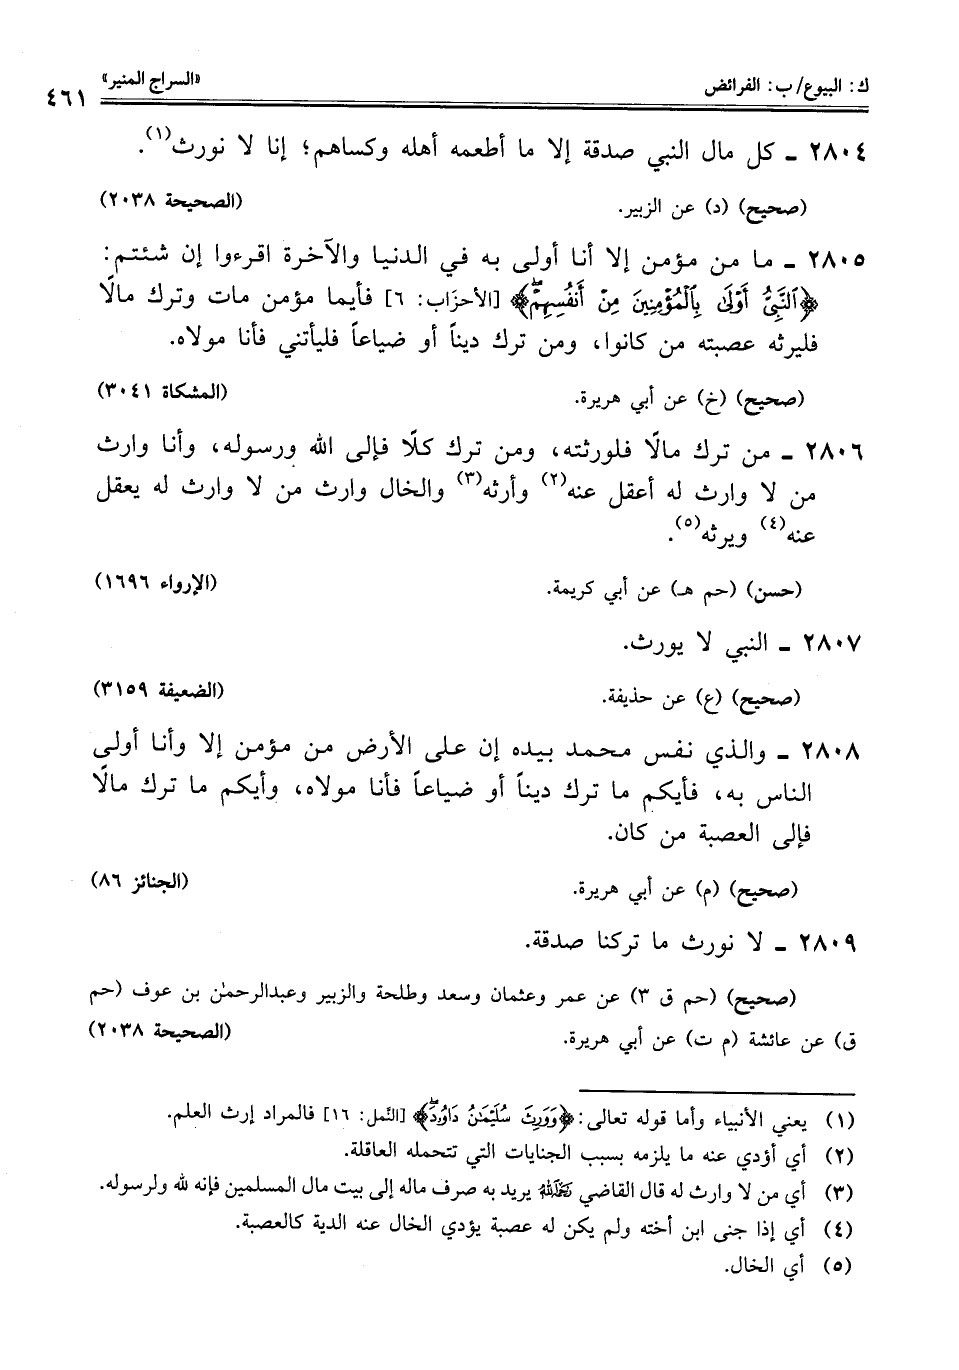 ك: البيوع/ ب: الفرائض
«السراج المنير»
٤٦١
٢٨٠٤ ـ كل مال النبي صدقة إلا ما أطعمه أهله وكساهم؛ إنا لا نورث(١).
(صحيح) (د) عن الزبير. (الصحيحة ٢٠٣٨)
٢٨٠٥ ـ ما من مؤمن إلا أنا أولى به في الدنيا والآخرة اقرءوا إن شئتم:
﴿ٱلنَّبِيُّ أَوْلَىٰ بِٱلْمُؤْمِنِينَ مِنْ أَنفُسِهِمْۖ﴾ [الأحزَاب: ٦] فأيما مؤمن مات وترك مالًا
فليرثه عصبته من كانوا، ومن ترك ديناً أو ضياعاً فليأتني فأنا مولاه.
(صحيح) (خ) عن أبي هريرة. (المشكاة ٣٠٤١)
٢٨٠٦ ـ من ترك مالًا فلورثته، ومن ترك كلًا فإلى الله ورسوله، وأنا وارث
من لا وارث له أعقل عنه(٢) وأرثه(٣) والخال وارث من لا وارث له يعقل
عنه(٤) ويرثه(٥).
(حسن) (حم هـ) عن أبي كريمة. (الإرواء ١٦٩٦)
٢٨٠٧ ـ النبي لا يورث.
(صحيح) (ع) عن حذيفة. (الضعيفة ٣١٥٩)
٢٨٠٨ ـ والذي نفس محمد بيده إن على الأرض من مؤمن إلا وأنا أولى
الناس به، فأيكم ما ترك ديناً أو ضياعاً فأنا مولاه، وأيكم ما ترك مالًا
فإلى العصبة من كان.
(صحيح) (م) عن أبي هريرة. (الجنائز ٨٦)
٢٨٠٩ ـ لا نورث ما تركنا صدقة.
(صحيح) (حم ق ٣) عن عمر وعثمان وسعد وطلحة والزبير وعبدالرحمٰن بن عوف (حم
ق) عن عائشة (م ت) عن أبي هريرة. (الصحيحة ٢٠٣٨)
(١) يعني الأنبياء وأما قوله تعالى: ﴿وَوَرِثَ سُلَيْمَٰنُ دَاوُۥدَۖ﴾ [النَّمل: ١٦] فالمراد إرث العلم.
(٢) أي أؤدي عنه ما يلزمه بسبب الجنايات التي تتحمله العاقلة.
(٣) أي من لا وارث له قال القاضي رَحِمَهُ اللهُ يريد به صرف ماله إلى بيت مال المسلمين فإنه لله ولرسوله.
(٤) أي إذا جنى ابن أخته ولم يكن له عصبة يؤدي الخال عنه الدية كالعصبة.
(٥) أي الخال.